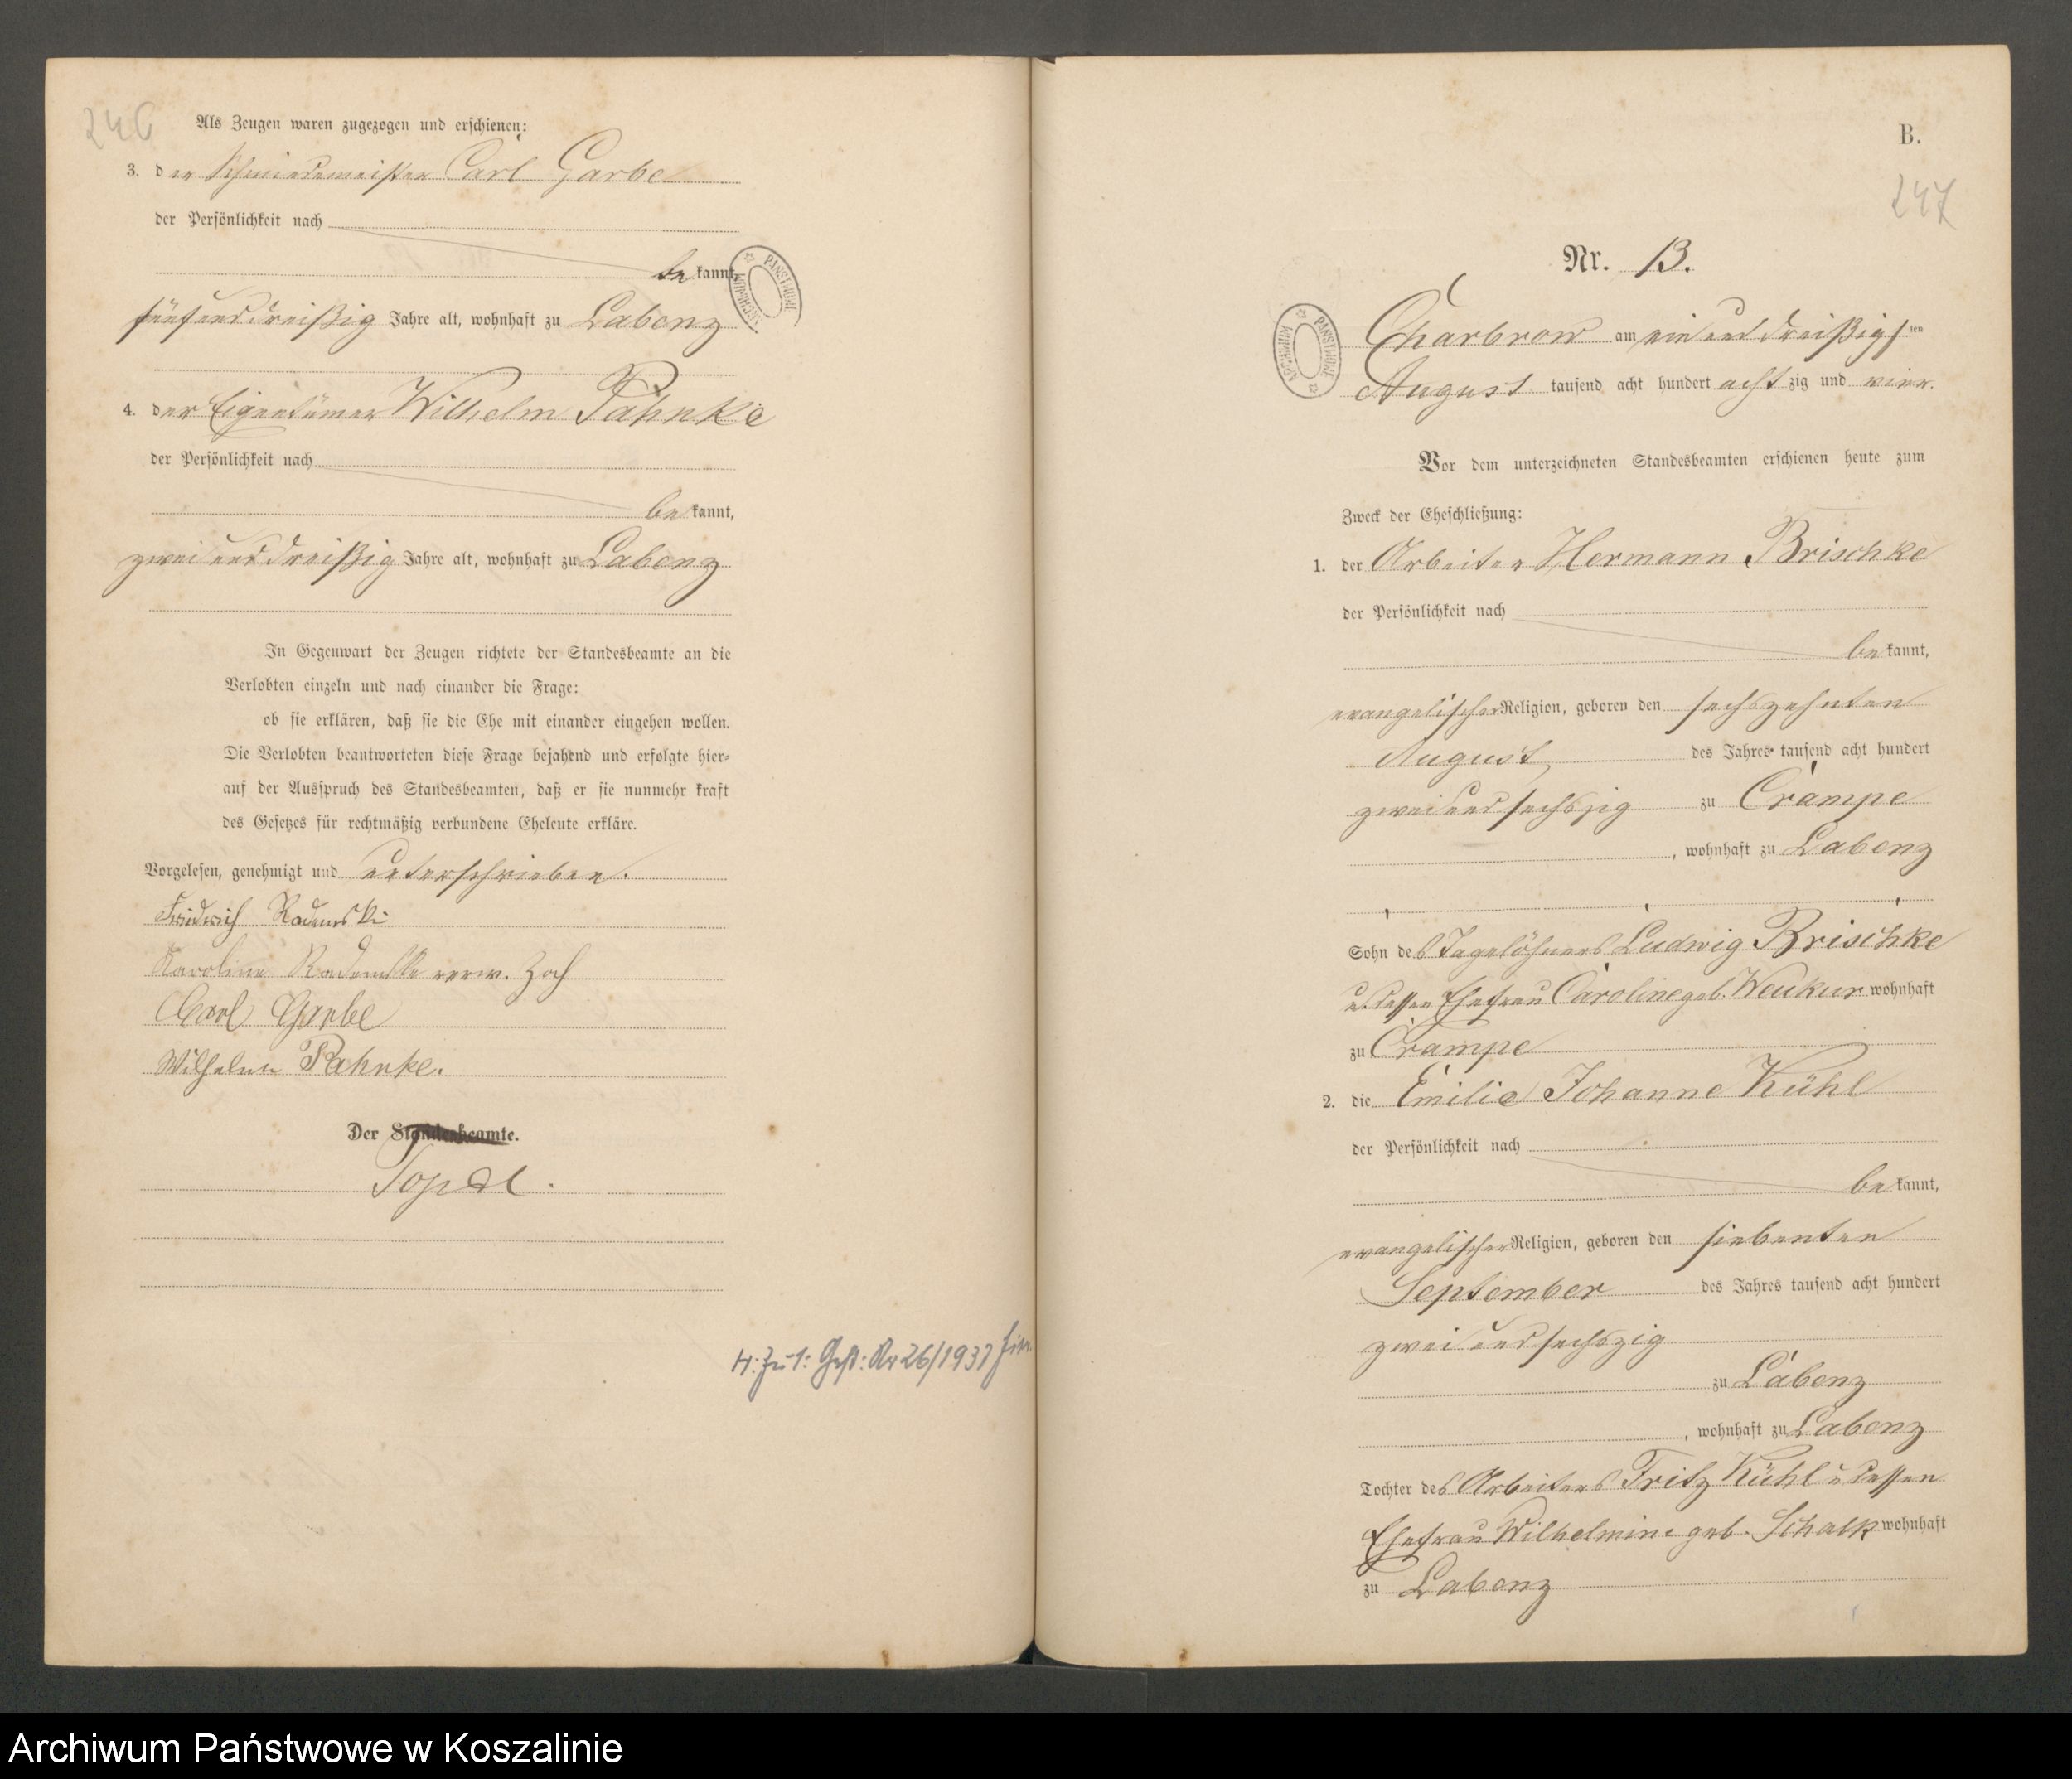 246
Als Zeugen waren zugezogen und erschienen:
3. der Schmiedemeister Carl Garbe
der Persönlichkeit nach
bekannt,
fünfunddreißig Jahre alt, wohnhaft zu Labenz
4. der Eigentümer Wilhelm Pahnke
der Persönlichkeit nach
bekannt,
zweiunddreißig Jahre alt, wohnhaft zu Labenz
In Gegenwart der Zeugen richtete der Standesbeamte an die
Verlobten einzeln und nach einander die Frage:
ob sie erklären, daß sie die Ehe mit einander eingehen wollen.
Die Verlobten beantworteten diese Frage bejahend und erfolgte hier-
auf der Ausspruch des Standesbeamten, daß er sie nunmehr kraft
des Gesetzes für rechtmäßig verbundene Eheleute erkläre.
Vorgelesen, genehmigt und unterschrieben.
Friedrich Rademski
Karoline verw. Zoch
Carl Garbe
Wilhelm Pahnke.
Der Standesbeamte.
Topel.
H: zu 1: Nr 26/1937
ARCHIWUM PAŃSTWOWE
B.
247
Nr. 13.
ARCHIWUM PAŃSTWOWE
Charbrow am einunddreißigsten
August tausend acht hundert achtzig und vier.
Vor dem unterzeichneten Standesbeamten erschienen heute zum
Zweck der Eheschließung:
1. der Arbeiter Hermann Brischke
der Persönlichkeit nach
bekannt,
evangelischer Religion, geboren den sechszehnten
August des Jahres tausend acht hundert
zweiundsechszig zu Crampe
, wohnhaft zu Labenz
Sohn des Tagelöhners Ludwig Brischke
u. dessen Ehefrau Caroline geb. Neukur wohnhaft
zu Crampe
2. die Emilie Johanne Kühl
der Persönlichkeit nach
bekannt,
evangelischer Religion, geboren den siebenten
September des Jahres tausend acht hundert
zweiundsechszig
zu Labenz
, wohnhaft zu Labenz
Tochter des Arbeiters Fritz Kühl u dessen
Ehefrau Wilhelmine geb. Schalk wohnhaft
zu Labenz
Archiwum Państwowe w Koszalinie